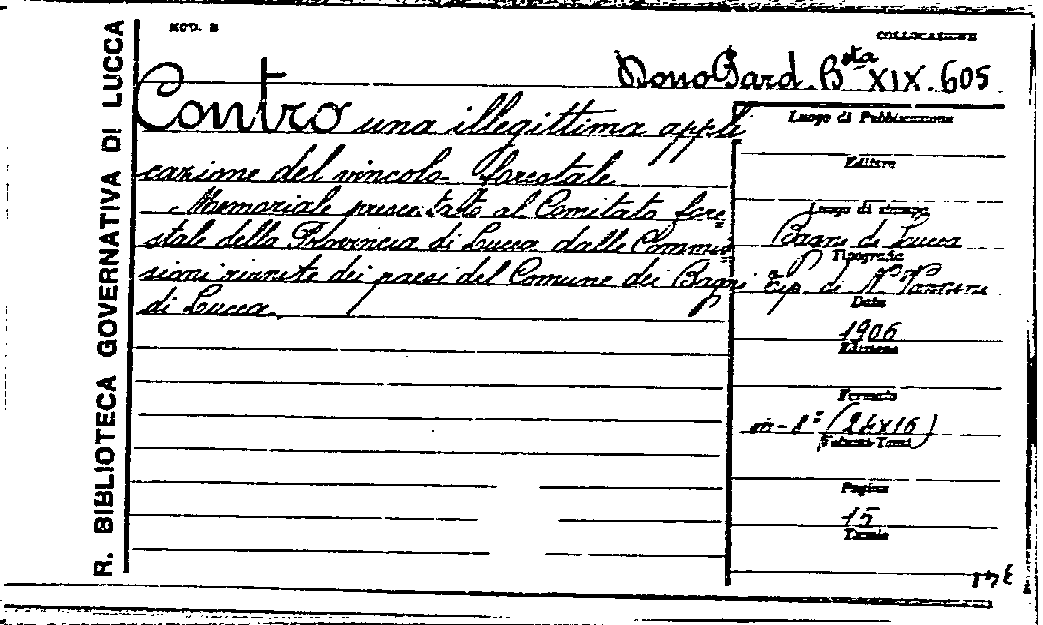 R. BIBLIOTECA GOVERNATIVA DI LUCCA
MOD. B
COLLOCAZIONE
Dono Bard. Bta XIX. 605
Contro una illegittima appli
cazione del vincolo forestale
Memoriale presentato al Comitato fore
stale della Provincia di Lucca dalle Commis
sioni riunite dei paesi del Comune dei Bagni
di Lucca.
Luogo di Pubblicazione
Editore
Luogo di stampa
Bagni di Lucca
Tipografia
Tip. di
Data
1906
Edizione
Formato
in-8° (24x16)
Volumi-Tomi
Pagine
15
Tavole